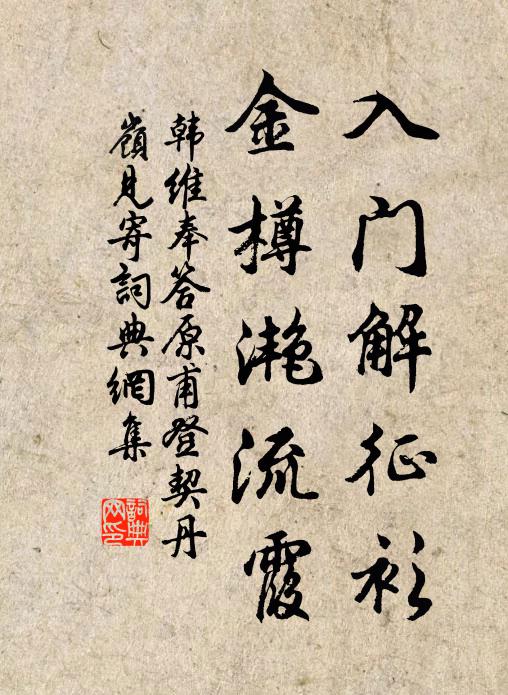 入门解征衫
金樽滟流霞
韩维奉答原甫登契丹
岭见寄词典网集
詞典网印